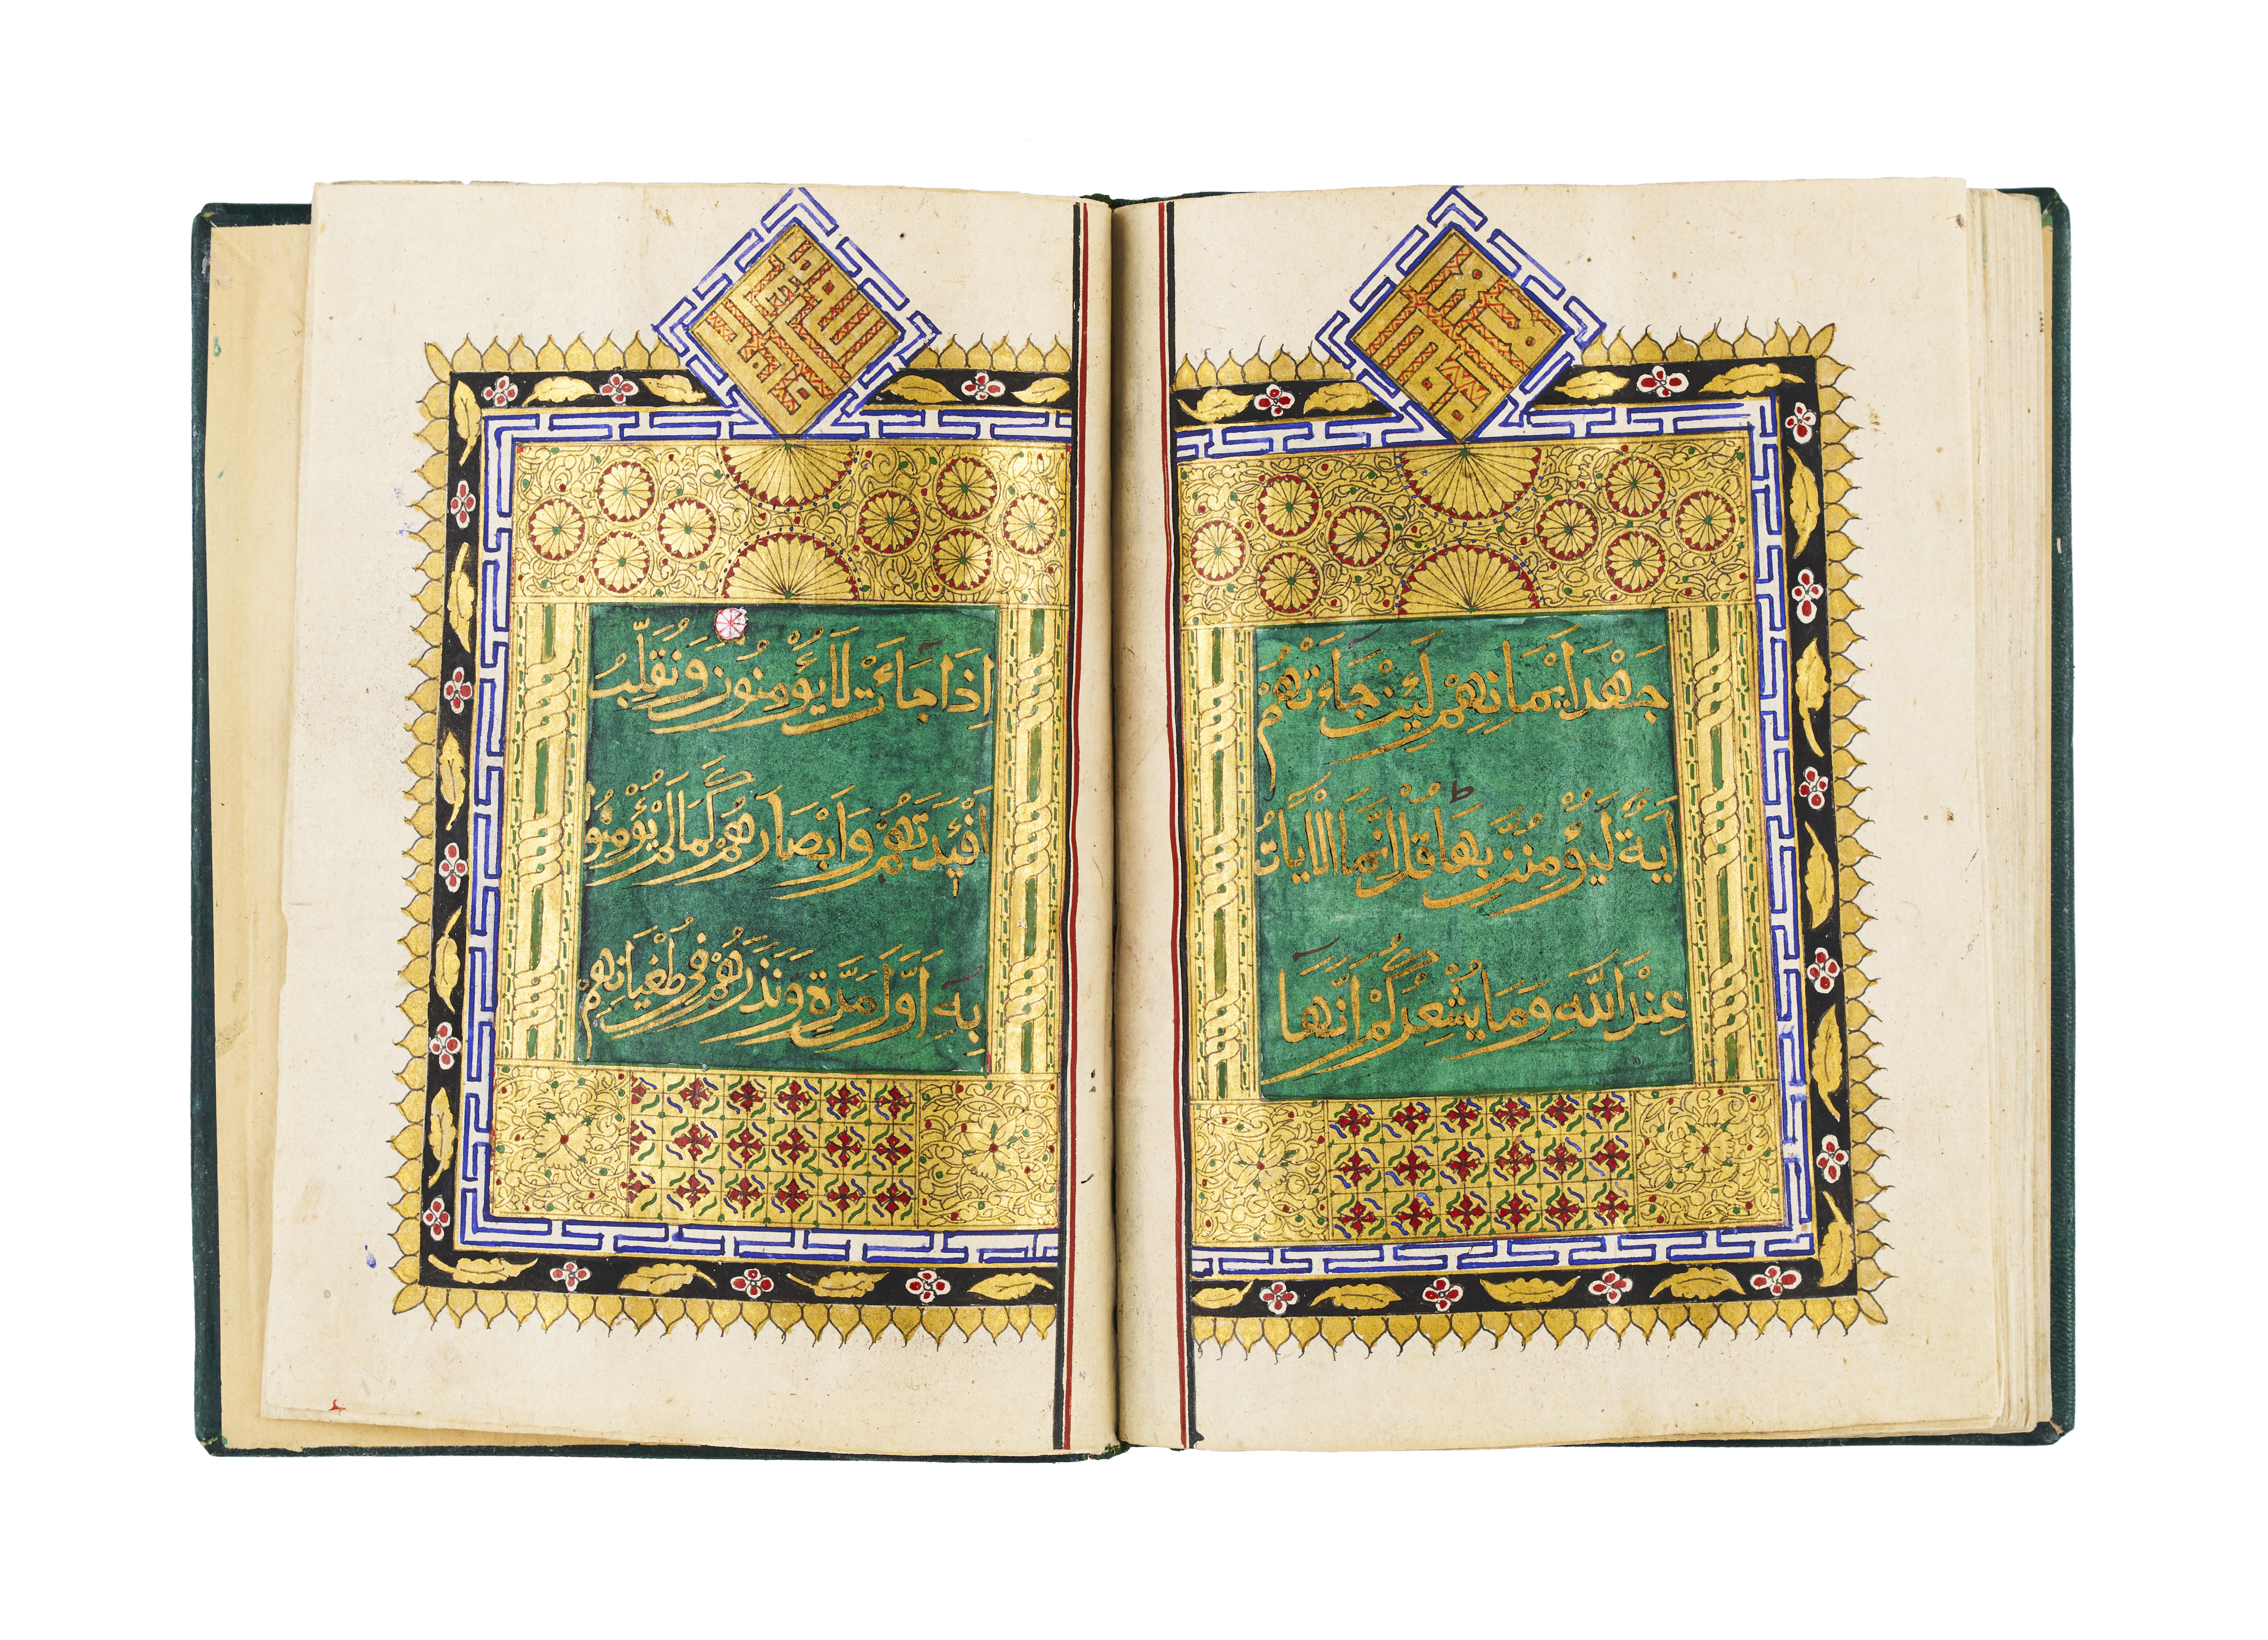 جَهْدَ اَيْمَانِهِمْ لَئِنْ جَاءَتْهُمْ
اَيَةٌ لَيُؤْمِنُنَّ بِهَا ط قُلْ اِنَّمَا الْاَيَاتُ
عِنْدَ اللَّهِ وَمَا يُشْعِرُكُمْ اَنَّهَا
اِذَا جَاءَتْ لَا يُؤْمِنُونَ وَنُقَلِّبُ
اَفْئِدَتَهُمْ وَاَبْصَارَهُمْ كَمَا لَمْ يُؤْمِنُوا
بِهِ اَوَّلَ مَرَّةٍ وَنَذَرُهُمْ فِي طُغْيَانِهِمْ